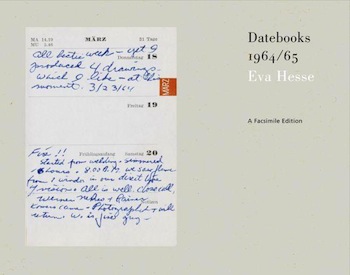 MÄRZ
31 Tage
Donnerstag 18
All hectic week – yet I
produced 4 drawings.
Which I like – at this
moment. 3/23/64
MÄRZ
Freitag 19
Frühlingsanfang Samstag 20
Fire!!
Started from welding – simmered
hours. 8:00 P.M. we saw flame
from 1 window in our direct line
of vision. All is well. close call.
Werner
came. Photographed & will
return. W. is fine guy –
Datebooks
1964/65
Eva Hesse
A Facsimile Edition